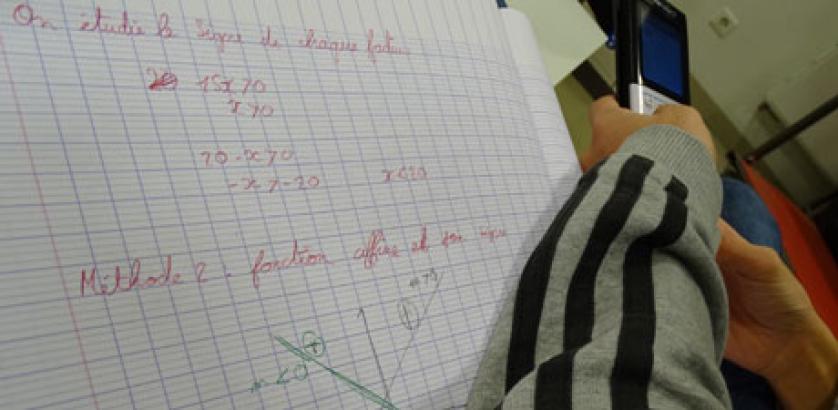 On étudie le signe de chaque facteur
15x > 0
x > 0
20 - x > 0
-x > -20 x < 20
Méthode 2 - fonction affine et son signe
m > 0
+
m < 0
+